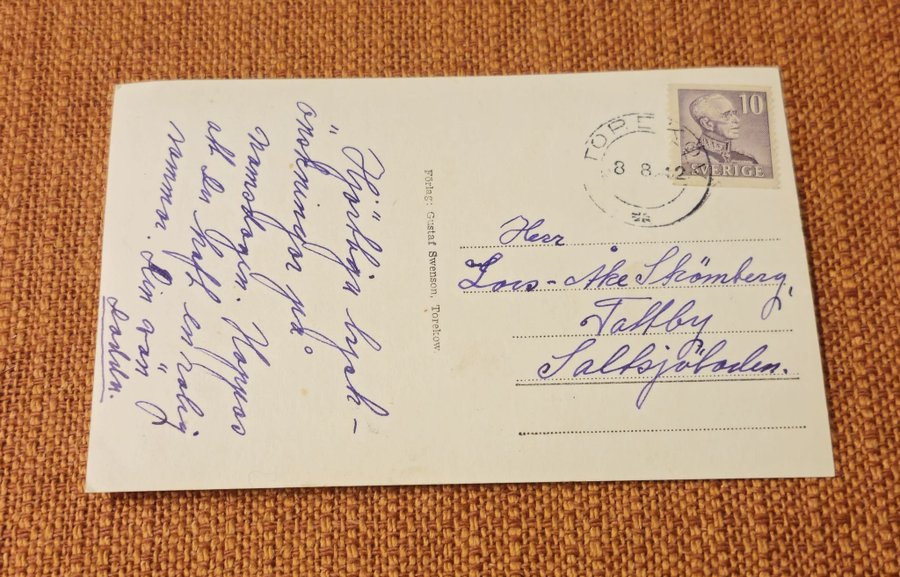 Hjärtliga lyck-
önskningar på
namnsdagen. Hoppas
att du haft en rolig
sommar. Din vän
Förlag: Gustaf Swenson, Torekow
10
SVERIGE
8 8.42
Herr
Lars-Åke Strömberg,
Tattby
Saltsjöbaden.